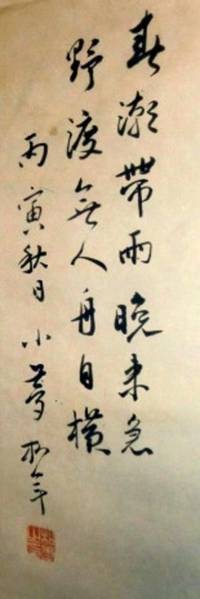 春潮帶雨晚來急
野渡無人舟自橫
丙寅秋日小夢